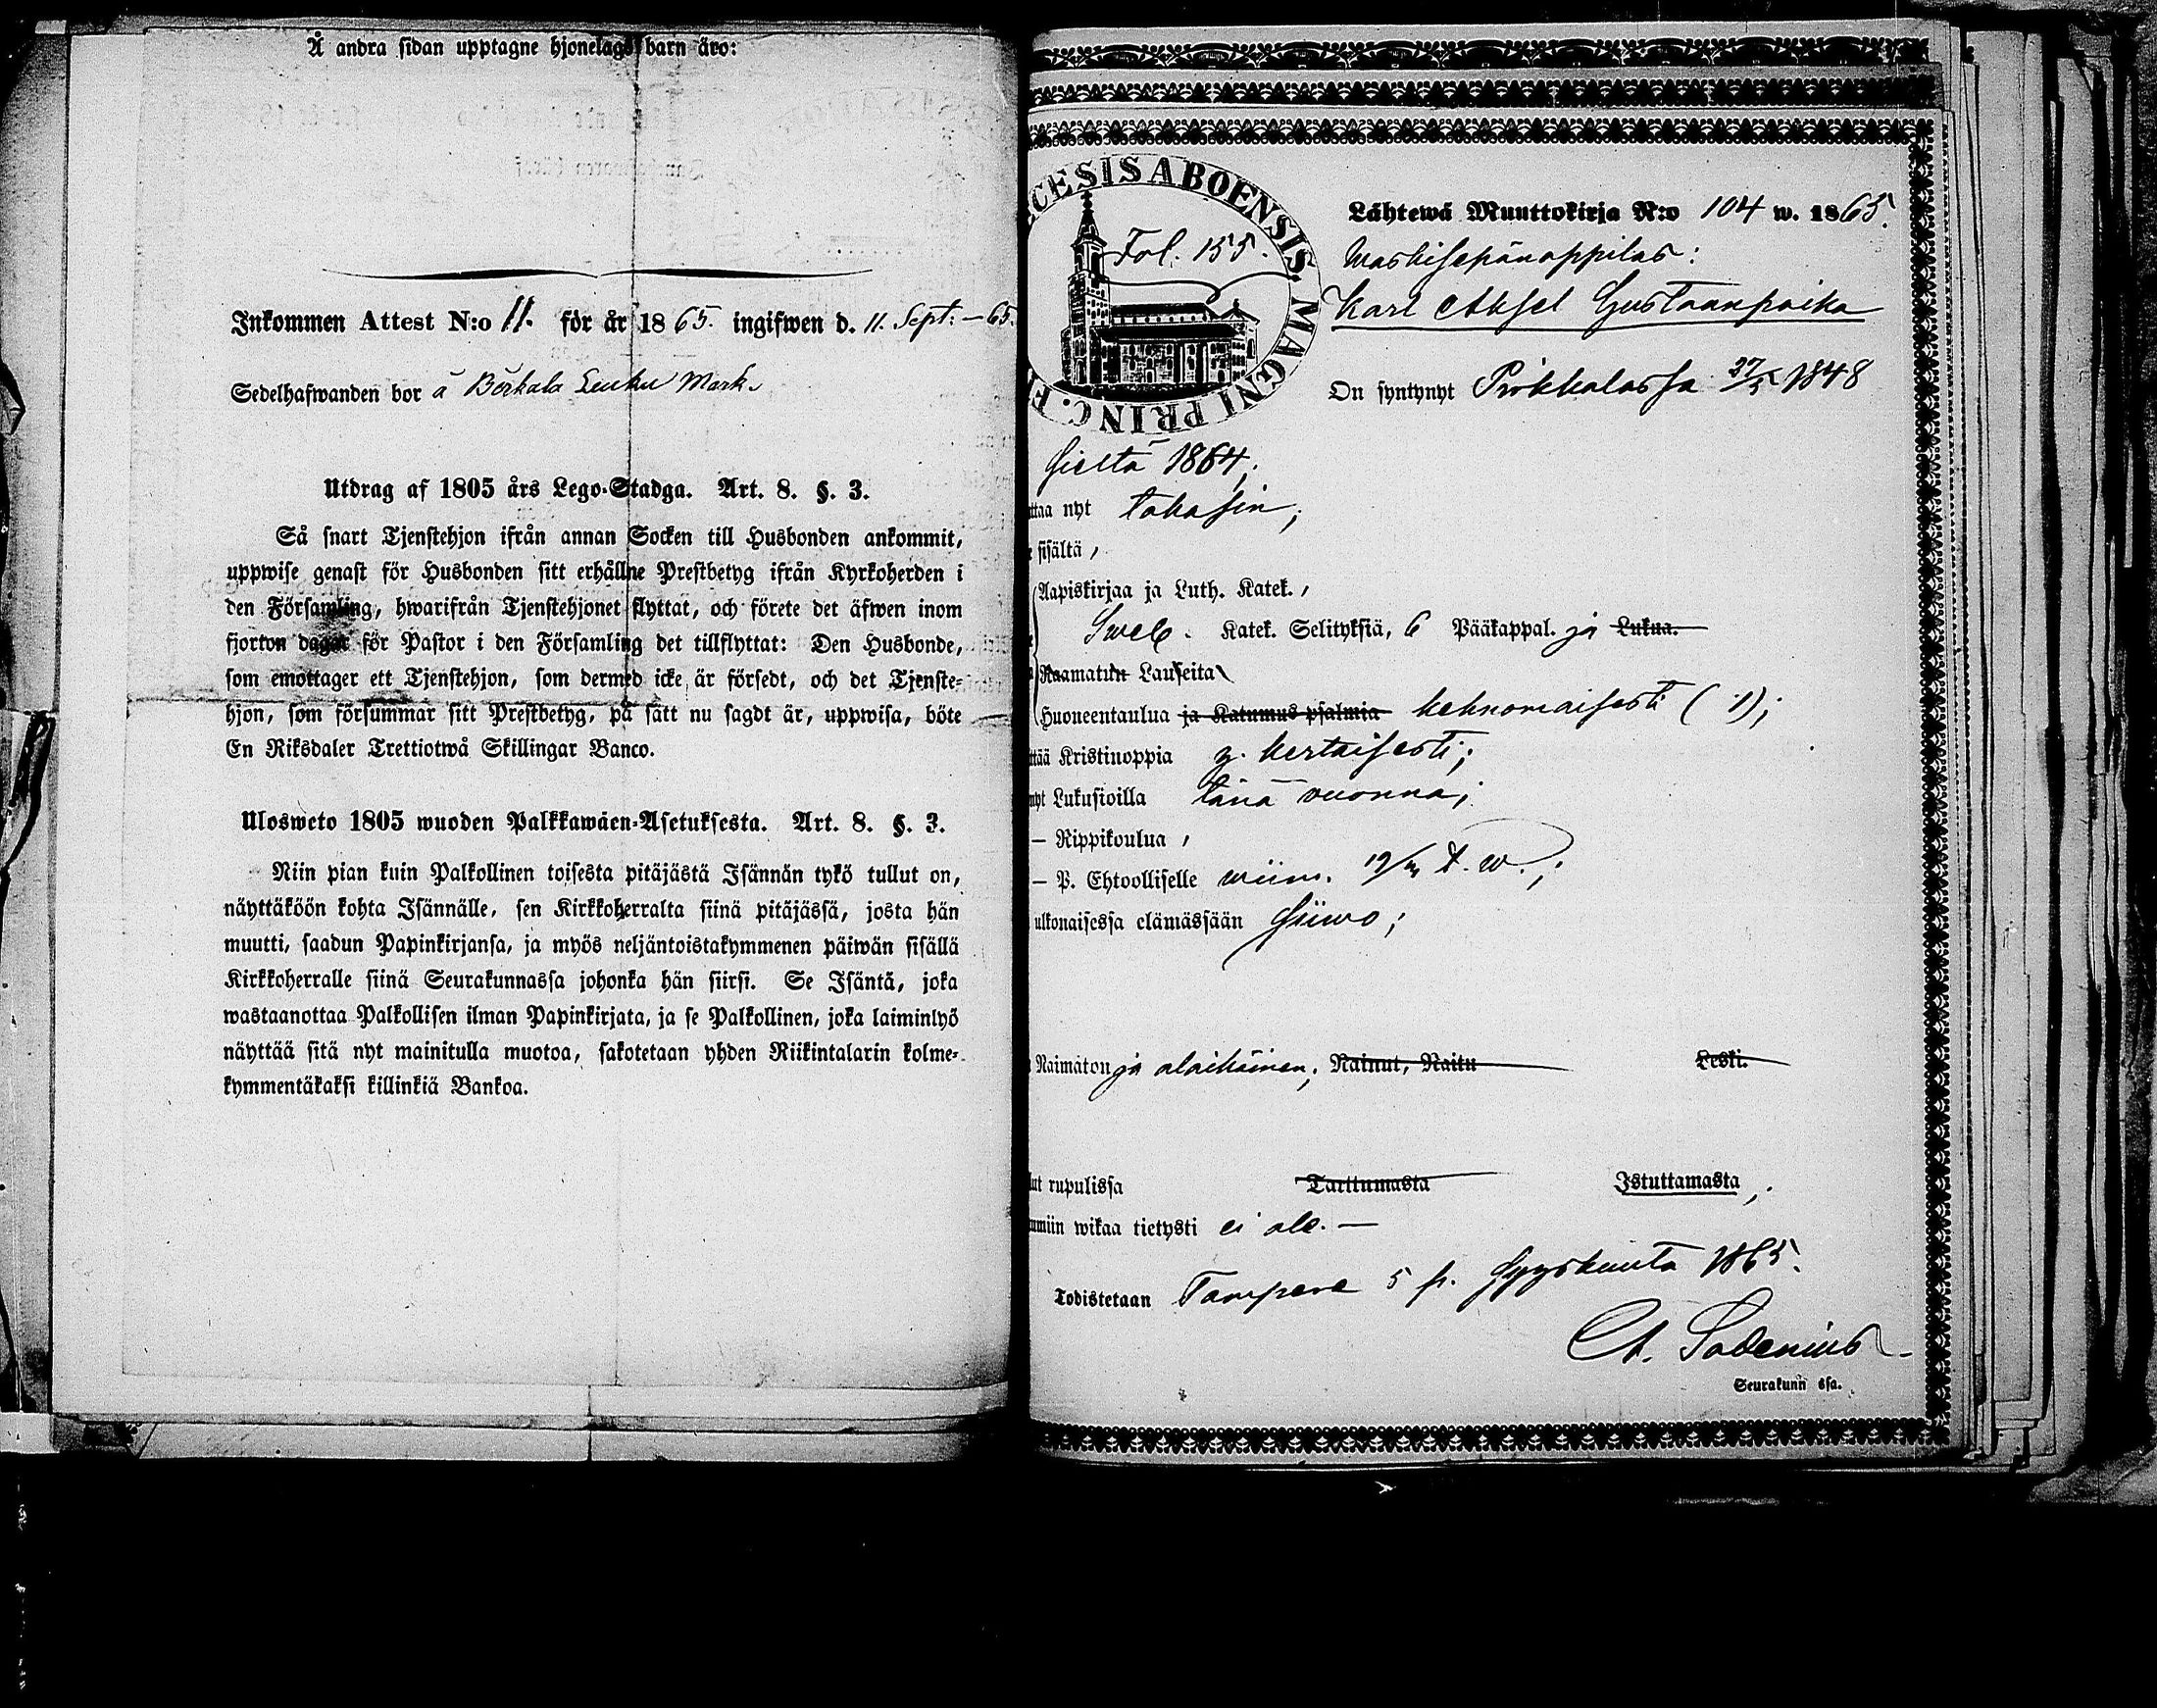 Å andra sidan upptagne hjonelags barn äro:
Inkommen Attest N:o 11. för år 1865. ingifwen d. 11. Sept. – 65.
Sedelhafwanden bor å Börkala Leuku Mark.
Utdrag af 1805 års Lego-Stadga. Art. 8. §. 3.
Så snart Tjenstehjon ifrån annan Socken till Husbonden ankommit,
uppwise genast för Husbonden sitt erhållne Prestbetyg ifrån Kyrkoherden i
den Församling, hwarifrån Tjenstehjonet flyttat, och förete det äfwen inom
fjorton dagar för Pastor i den Församling det tillflyttat: Den Husbonde,
som emottager ett Tjenstehjon, som dermed icke är försedt, och det Tjenste-
hjon, som försummar sitt Prestbetyg, på sätt nu sagdt är, uppwisa, böte
En Riksdaler Trettiotwå Skillingar Banco.
Ulosweto 1805 wuoden Palkkawäen-Asetuksesta. Art. 8. §. 3.
Niin pian kuin Palkollinen toisesta pitäjästä Isännän tykö tullut on,
näyttäköön kohta Isännälle, sen Kirkkoherralta siinä pitäjässä, josta hän
muutti, saadun Papinkirjansa, ja myös neljäntoistakymmenen päiwän sisällä
Kirkkoherralle siinä Seurakunnassa johonka hän siirsi. Se Isäntä, joka
wastaanottaa Palkollisen ilman Papinkirjata, ja se Palkollinen, joka laiminlyö
näyttää sitä nyt mainitulla muotoa, sakotetaan yhden Riikintalarin kolme-
kymmentäkaksi killinkiä Bankoa.
CESIS ABOENSIS. MAGNI PRINC. F
Fol. 155.
Lähtewä Muuttokirja N:o 104 w. 1865.
Waskisepänoppilas:
Karl Aksel Gustaanpoika
On syntynyt Pirkkalassa 27/5 1848
sieltä 1864;
ttaa nyt takasin;
sisältä,
Aapiskirjaa ja Luth. Katek.,
Sweb. Katek. Selityksiä, 6 Pääkappal. ja Lukua.
Raamatun Lauseita
Huoneentaulua ja Katumus psalmia kehnomaisesti (1);
ttää Kristinoppia y. kertaisesti;
nyt Lukusioilla tänä vuonna;
– Rippikoulua,
– P. Ehtoolliselle wiim. t. w.;
ulkonaisessa elämässään siiwo;
Naimaton ja alaikäinen; Nainut, Naitu Leski.
ut rupulissa Tarttumasta Istuttamasta,
mmiin wikaa tietysti ei ole. –
Todistetaan Tampere 5 p. Syyskuuta 1865.
A. Sadenius
Seurakunn ssa.